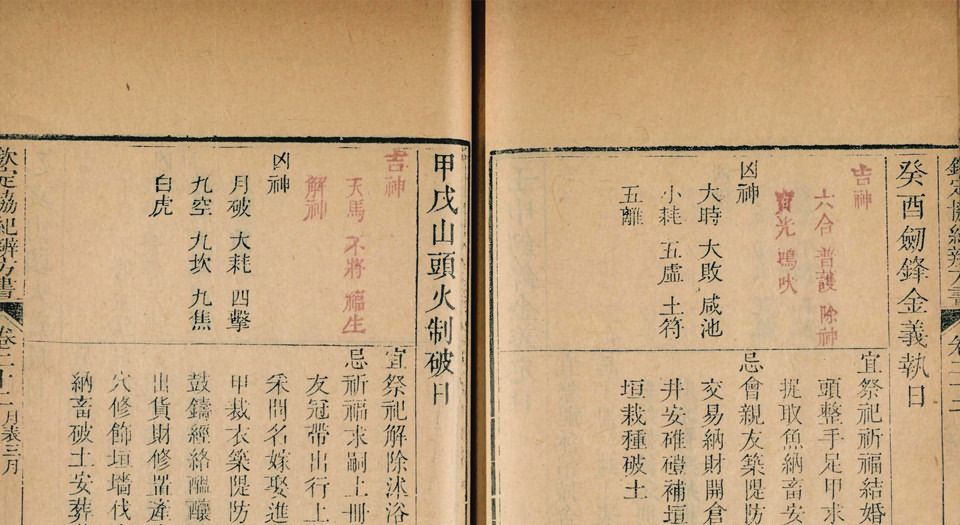 癸酉劒鋒金義執日
吉神
六合 普護 除神
寶光 鳴吠
凶神
大時 大敗 咸池
小耗 五虛 土符
五離
宜祭祀祈福結婚
頭整手足甲求
提取魚納畜安
忌會親友築隄防
交易納財開倉
井安碓磑補垣
垣栽種破土
甲戌山頭火制破日
吉神
天馬 不將 福生
解神
凶神
月破 大耗 四擊
九空 九坎 九焦
白虎
宜祭祀解除沐浴
忌祈福求嗣上冊
友冠帶出行上
采問名嫁娶進
甲裁衣築隄防
鼓鑄經絡醖釀
出貨財修置產
穴修飾垣墻伐
納畜破土安葬
欽定協紀辨方書 卷二十二 月表三月